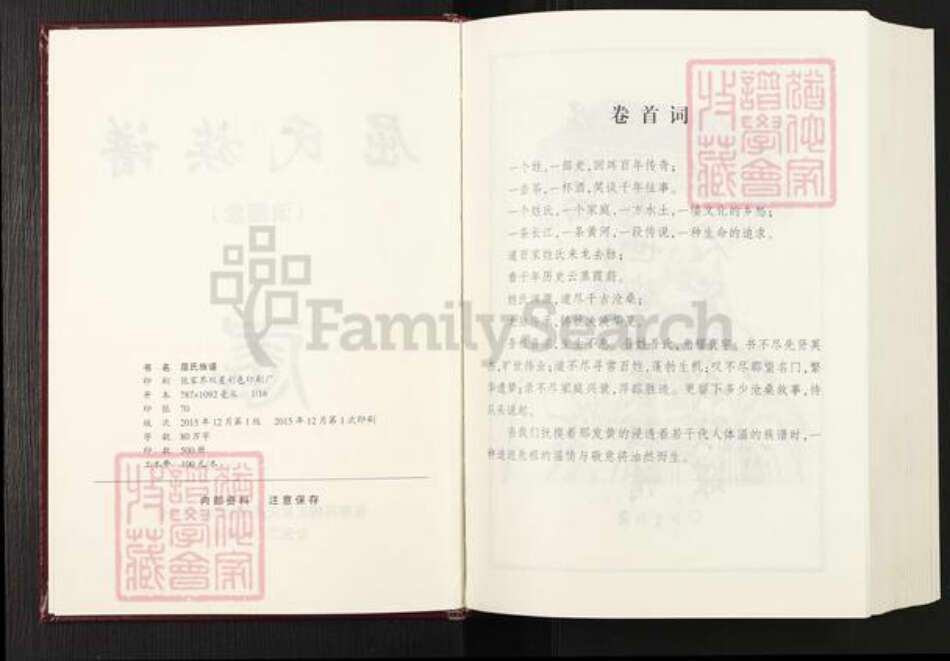 书 名 屈氏族谱
印 刷 张家界
开 本 787×1092毫米 1/16
印 张 70
版 次 2015年12月第1版 2015年12月第1次印刷
字 数 80万字
印 数 500册
工本费 400元/本
内部资料 注意保存
卷首词
一个姓,一部史,回眸百年传奇;
一壶茶,一杯酒,笑谈千年往事。
一个姓氏,一个家庭,一方水土,一缕文化的乡愁;
一条长江,一条黄河,一段传说,一种生命的追求。
道百家姓氏来龙去脉;
看千年历史云蒸霞蔚。
姓氏渊源,道尽千古沧桑;
书不尽先贤英
杰,旷世伟业;道不尽寻常百姓,蓬勃生机;叹不尽那望名门,繁
华遗梦;录不尽家庭兴衰,浮踪胜迹。更留下多少沧桑故事,待
从头说起。
当我们抚摸着那发黄的浸透着若干代人体温的族谱时,一
种追巡先祖的温情与敬意将油然而生。
FamilySearch